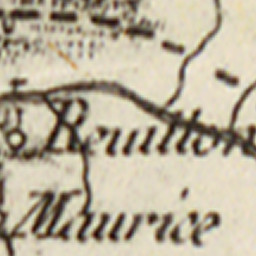 Reuilton
Maurice